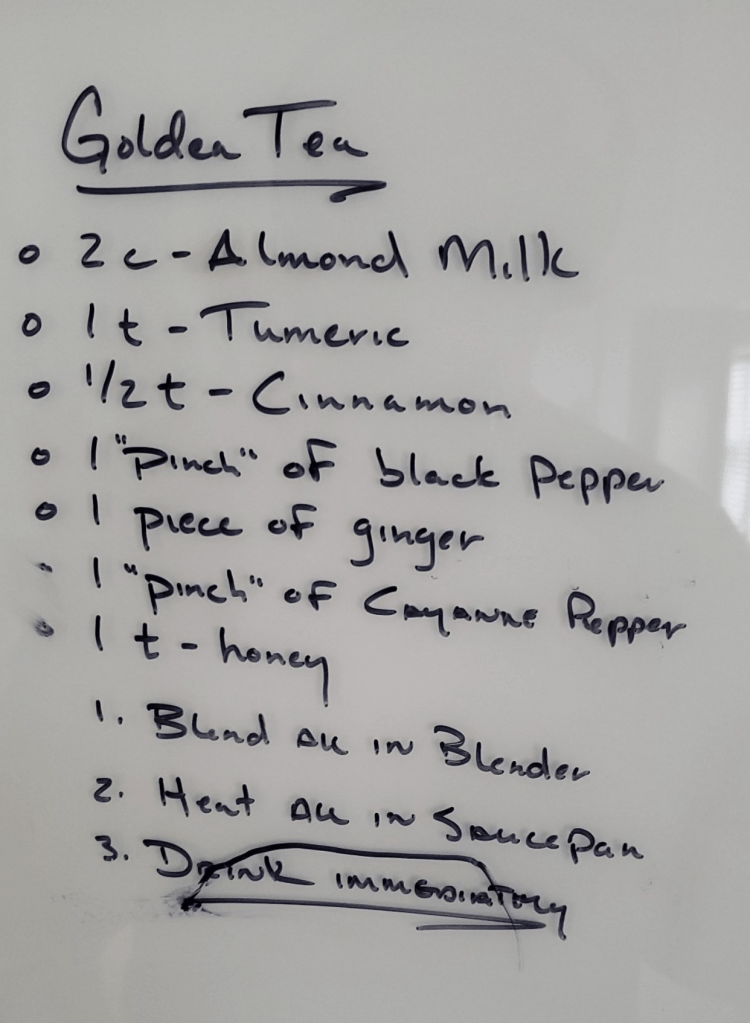 Golden Tea
o 2c - Almond Milk
o 1 t - Tumeric
o 1/2 t - Cinnamon
o 1 "pinch" of black pepper
o 1 piece of ginger
• 1 "pinch" of Cayanne Pepper
• 1 t - honey
1. Blend All in Blender
2. Heat All in Saucepan
3. Drink immediatley